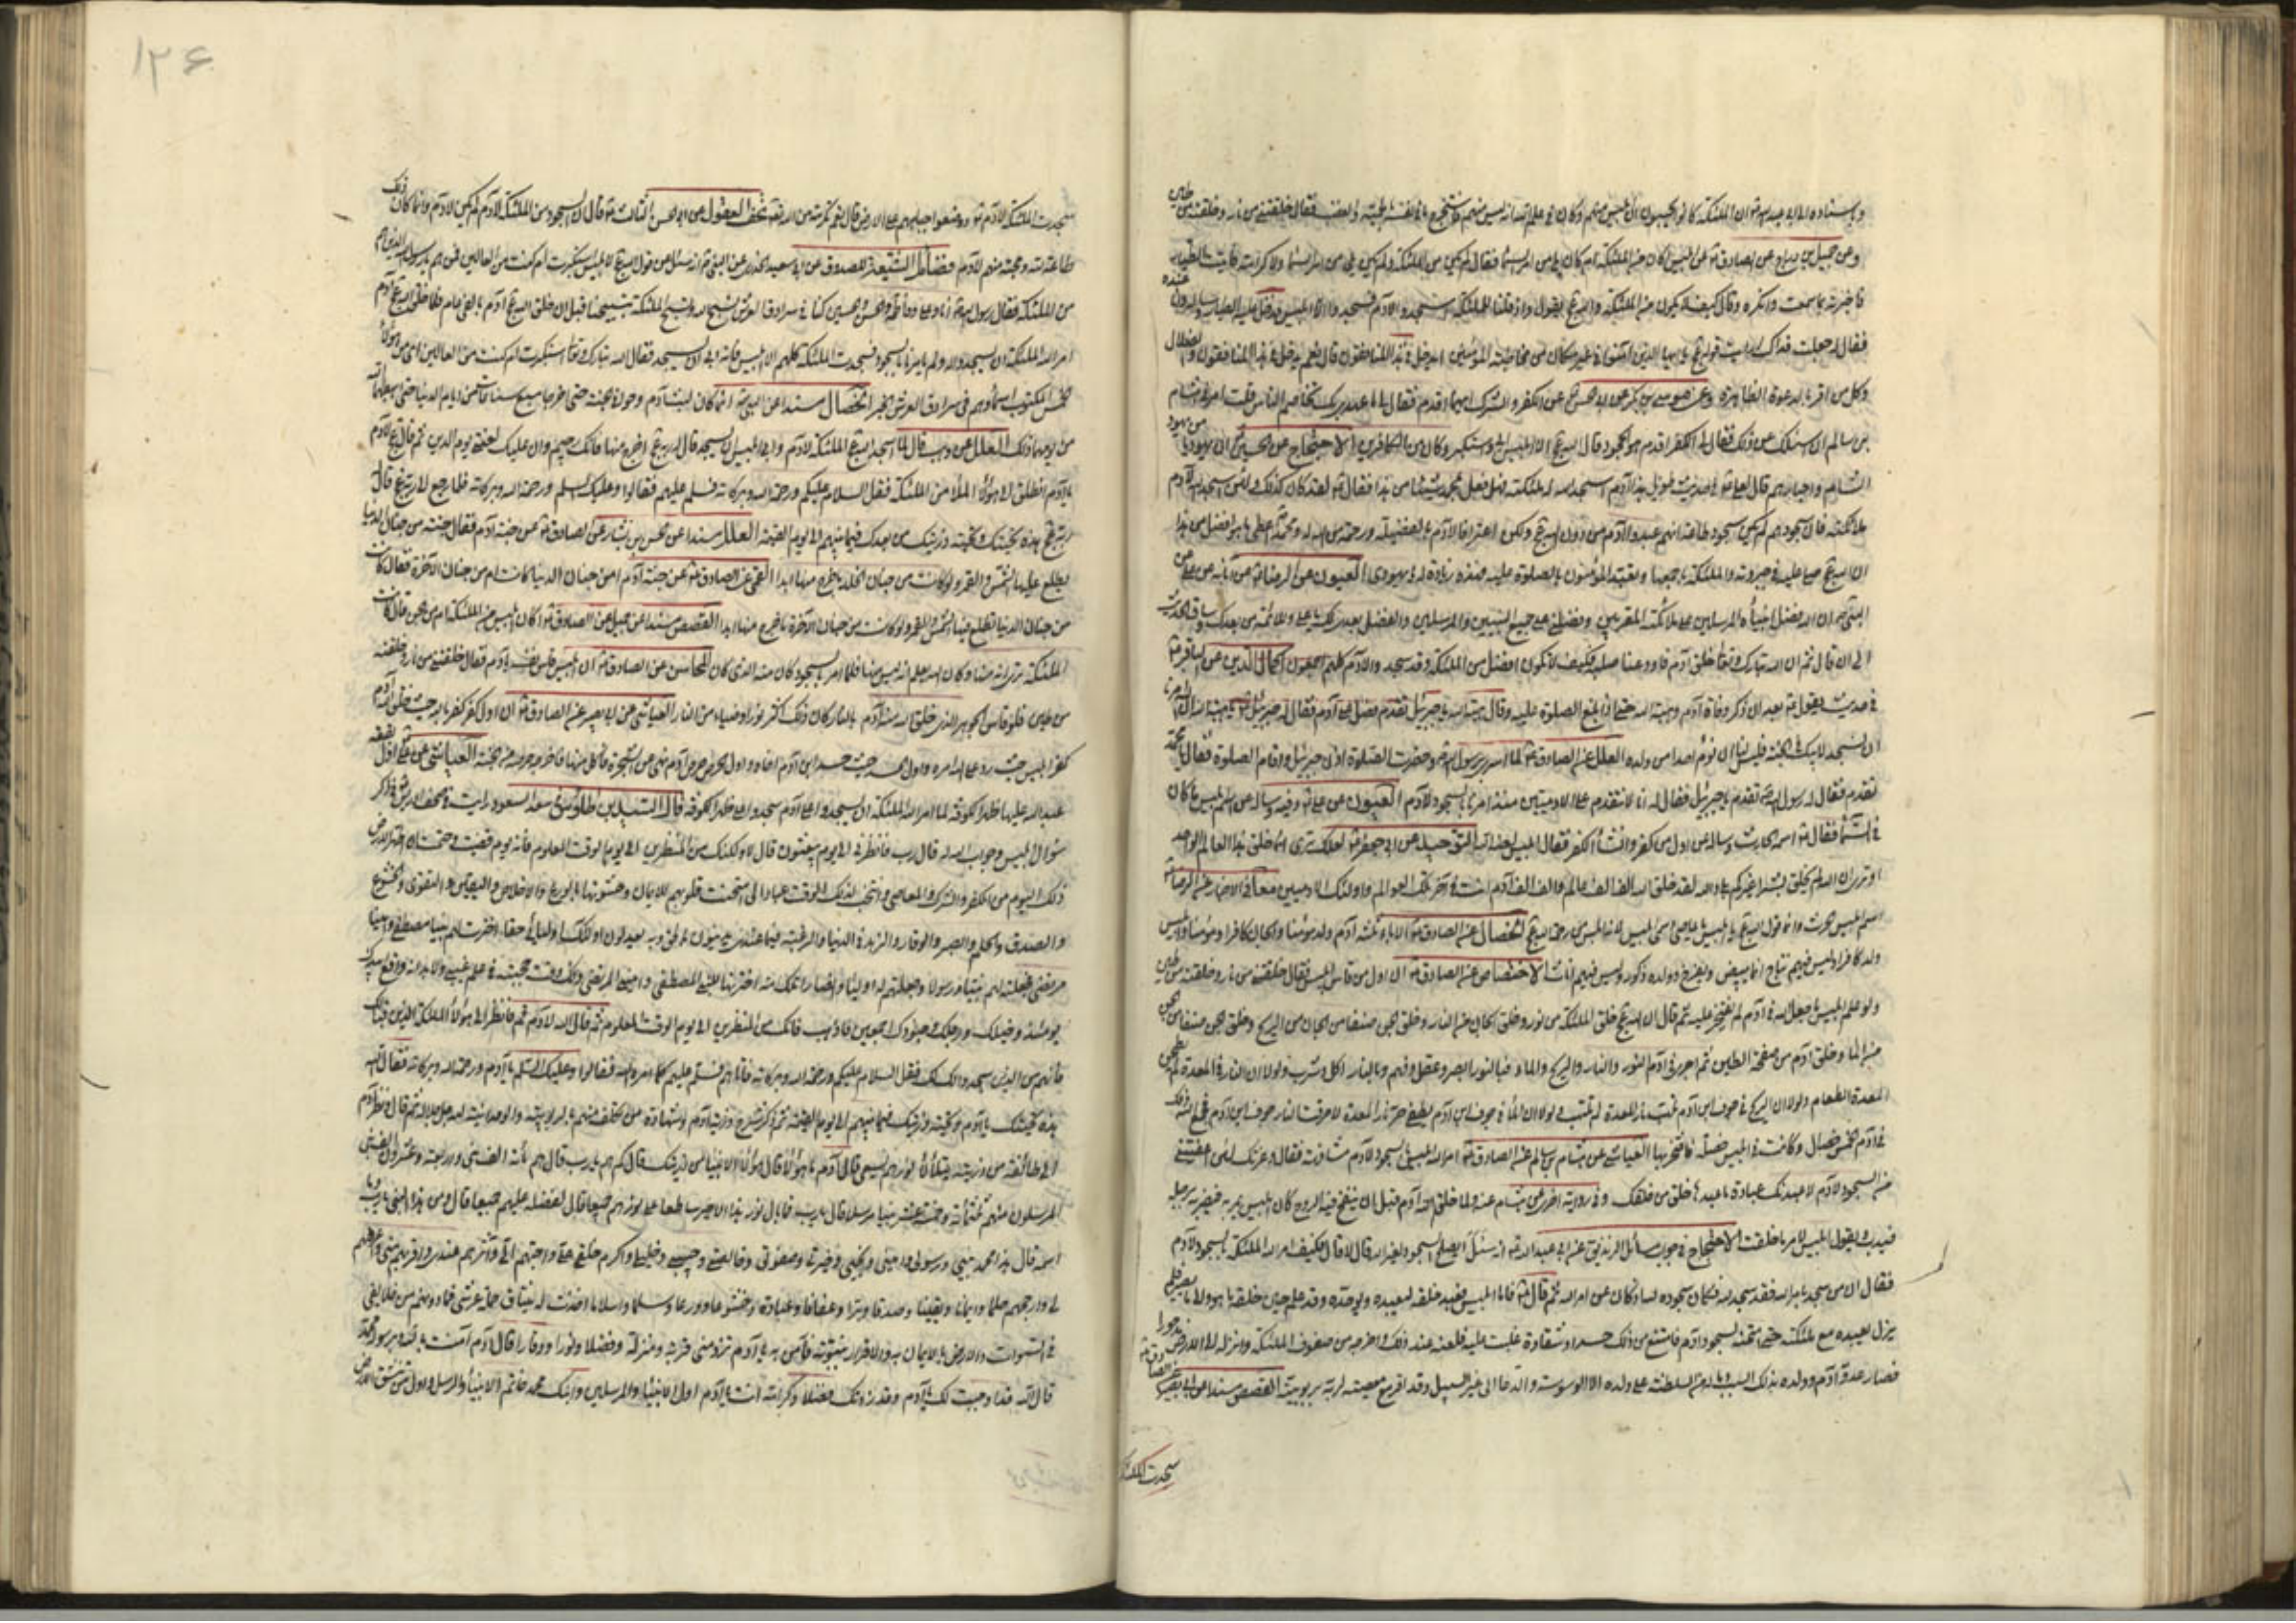 وباسناده الى ابي عبد الله ان الملئكة كانوا يحسبون ان ابليس منهم وكان في علم الله انه ليس منهم فاستخرج ما في نفسه بالحمية والغضب فقال خلقتني من نار وخلقته من طين
وعن جميل بن دراج عن الصادق عن ابليس اكان من الملئكة ام كان يلي من امر السماء فقال لم يكن من الملئكة ولم يكن يلي من امر السماء ولا كرامة فاتيت الطيار
فاخبرته بما سمعت وانكره وقال كيف لا يكون من الملئكة والله يقول واذ قلنا للملئكة اسجدوا لادم فسجدوا الا ابليس فدخل عليه الطيار وساله وانا عنده
فقال له جعلت فداك ارايت قوله يا ايها الذين آمنوا في غير مكان من مخاطبة المؤمنين ايدخل في هذا المنافقون قال نعم يدخل في هذا المنافقون والضلال
وكل من اقر بالدعوة الظاهرة وعن موسى بن بكر عن ابي الحسن عن الكفر والشرك ايهما اقدم فقال لي ما عهدي بك تخاصم الناس قلت امرني هشام
بن سالم ان اسئلك عن ذلك فقال لي الكفر اقدم هو الجحود قال الا ابليس ابى واستكبر وكان من الكافرين الاحتجاج عن الحسين ان يهوديا من يهود
الشام واحبارهم قال لعلي في حديث طويل هذا آدم اسجد الله له ملئكته فهل فعل بمحمد شيئا من هذا فقال لقد كان كذلك ولئن اسجد الله لادم
ملائكته فان سجودهم لم يكن سجود طاعة انهم عبدوا آدم من دون الله ولكن اعترافا لادم بالفضيلة ورحمة من الله له ومحمد اعطي ما هو افضل من هذا
ان الله صلى عليه في جبروته والملئكة باجمعها وتعبد المؤمنون بالصلوة عليه فهذه زيادة له يا يهودي العيون عن الرضا عن آبائه عن علي عن
النبي ان الله فضل انبياءه المرسلين على ملائكته المقربين وفضلني على جميع النبيين والمرسلين والفضل بعدي لك يا علي وللائمة من بعدك وساق الحديث
الى ان قال ثم ان الله تبارك وتعالى خلق آدم فاودعنا صلبه فكيف لا نكون افضل من الملئكة وقد سجدوا لادم كلهم اجمعون اكمال الدين عن الباقر
في حديث يقول فيه بعد ان ذكر وفاة آدم وهبة الله حتى اذا بلغ الصلوة عليه وقال هبة الله يا جبرئيل تقدم فصل على آدم فقال له جبرئيل يا هبة الله ان الله امرنا
ان نسجد لابيك في الجنة فليس لنا ان نؤم احدا من ولده العلل عن الصادق لما اسري برسول الله وحضرت الصلوة اذن جبرئيل واقام الصلوة فقال يا محمد
تقدم فقال له رسول الله تقدم يا جبرئيل فقال له انا لا نتقدم على الادميين منذ امرنا بالسجود لادم العيون عن علي وفيه وساله عن اسم ابليس ما كان
في السماء فقال اسمه الحارث وساله عن اول من كفر وانشأ الكفر فقال ابليس لعنه الله التوحيد عن ابي جعفر لعلك ترى انما خلق هذا العالم الواحد
او ترى ان الله لم يخلق بشرا غيركم بلى والله لقد خلق الله الف الف عالم والف الف آدم انت في آخر تلك العوالم واولئك الادميين معاني الاخبار عن الرضا
اسم ابليس الحرث وانما قول الله يا ابليس يا عاصي وسمي ابليس لانه ابلس من رحمة الله الخصال عن الصادق الاباء ثلثة آدم ولد مؤمنا والجان ولد كافرا ومؤمنا وابليس
ولد كافرا وليس فيهم نتاج انما يبيض ويفرخ وولده ذكور وليس فيهم اناث الاختصاص عن الصادق ان اول من قاس ابليس فقال خلقتني من نار وخلقته من طين
ولو علم ابليس ما جعل الله في آدم لم يفتخر عليه ثم قال ان الله خلق الملئكة من نور وخلق الجان من النار وخلق الجن صنفا من الجان من الريح وخلق الجن صنفا من الجن
من الماء وخلق آدم من صفحة الطين ثم اجرى في آدم النور والنار والريح والماء فبالنور ابصر وعقل وفهم وبالنار اكل وشرب ولولا ان النار في المعدة لم يطحن
المعدة الطعام ولولا ان الريح في جوف ابن آدم تلهب نار المعدة لم تلتهب ولولا ان الماء في جوف ابن آدم يطفئ حر نار المعدة لاحرقت النار جوف ابن آدم فجمع الله ذلك
في آدم الخمس خصال وكانت في ابليس خصلة فافتخر بها العياشي عن هشام بن سالم عن الصادق امر الله ابليس بالسجود لادم مشافهة فقال وعزتك لئن اعفيتني
من السجود لادم لاعبدنك عبادة ما عبدها خلق من خلقك وفي رواية اخرى عن هشام عنه ولما خلق الله آدم قبل ان ينفخ فيه الروح كان ابليس يمر به فيضربه برجله
فيدب فيقول ابليس لامر ما خلقت الاحتجاج في جواب مسائل الزنديق عن ابي عبد الله انه سئل ايصلح السجود لغير الله قال لا قال فكيف امر الله الملئكة بالسجود لادم
فقال ان من سجد بامر الله فقد سجد لله فكان سجوده لله اذ كان عن امر الله ثم قال فاما ابليس فعبد خلقه ليعبده ويوحده وقد علم حين خلقه ما هو والى ما يصير فلم
يزل يعبده مع ملئكته حتى امتحنه بسجود آدم فامتنع من ذلك حسدا وشقاوة غلبت عليه فلعنه عند ذلك واخرجه من صفوف الملئكة وانزله الى الارض مدحورا
فصار عدو آدم وولده بذلك السبب وما له من السلطنة على ولده الا الوسوسة والدعاء الى غير السبيل وقد اقر مع معصيته لربه بربوبيته القصص مسندا عن ابي بصير
سجدت الملئكة
١٢٤
سجدت الملئكة لادم ووضعوا جباههم على الارض قال نعم تكرمة من الله تحف العقول عن ابي الحسن الثالث قال ان السجود من الملئكة لادم لم يكن لادم وانما كان ذلك
طاعة لله ومحبة منهم لادم فضائل الشيعة للصدوق عن ابي سعيد الخدري عن النبي انه سئل عن قول الله لابليس استكبرت ام كنت من العالين فمن هم يا رسول الله الذين هم
من الملئكة فقال رسول الله انا وعلي وفاطمة والحسن والحسين كنا في سرادق العرش نسبح الله وتسبح الملئكة بتسبيحنا قبل ان خلق الله آدم بالفي عام فلما خلق الله آدم
امر الله الملئكة ان يسجدوا له ولم يامرنا بالسجود فسجدت الملئكة كلهم الا ابليس فانه ابى ان يسجد فقال الله تبارك وتعالى استكبرت ام كنت من العالين اي من هؤلاء
الخمس المكتوب اسماؤهم في سرادق العرش الخبر الخصال مسندا عن النبي انما كان لبث آدم وحوا في الجنة حتى اخرجا منها سبع ساعات من ايام الدنيا حتى اهبطهما الله
من يومهما ذلك العلل عن وهب قال لما اسجد الله الملئكة لادم وابى ابليس ان يسجد قال له ربه اخرج منها فانك رجيم وان عليك لعنتي الى يوم الدين ثم قال لادم
يا آدم انطلق الى هؤلاء الملأ من الملئكة فقل السلام عليكم ورحمة الله وبركاته فسلم عليهم فقالوا وعليك السلم ورحمة الله وبركاته فلما رجع الى ربه قال
ربه هذه تحيتك وتحية ذريتك من بعدك فيما بينهم الى يوم القيمة العلل مسندا عن الحسن بن بشار عن الصادق عن جنة آدم فقال جنة من جنان الدنيا
يطلع عليها الشمس والقمر ولو كانت من جنان الخلد ما خرج منها ابدا القمي عن الصادق عن جنة آدم امن جنان الدنيا كانت ام من جنان الاخرة فقال كانت
من جنان الدنيا تطلع فيها الشمس والقمر ولو كانت من جنان الاخرة ما خرج منها ابدا القصص مسندا عن جميل عن الصادق اكان ابليس من الملئكة ام من الجن قال كانت
الملئكة ترى انه منها وكان الله يعلم انه ليس منها فلما امر بالسجود كان منه الذي كان المحاسن عن الصادق ان ابليس قاس نفسه بآدم فقال خلقتني من نار وخلقته
من طين فلو قاس الجوهر الذي خلق الله منه آدم بالنار كان ذلك اكثر نورا وضياء من النار العياشي عن ابي بصير عن الصادق ان اول كفر كفر بالله حيث خلق الله آدم
كفر ابليس حيث رد على الله امره واول الحسد حيث حسد ابن آدم اخاه واول الحرص حرص آدم نهي عن الشجرة فاكل منها فاخرجه حرصه من الجنة العياشي عن علي اول بقعة
عبد الله عليها ظهر الكوفة لما امر الله الملئكة ان يسجدوا لادم سجدوا على ظهر الكوفة قال السيد بن طاوس في سعد السعود رايت في صحف ادريس في ذكر
سؤال ابليس وجواب الله له قال رب فانظرني الى يوم يبعثون قال لا ولكنك من المنظرين الى يوم الوقت المعلوم فانه يوم قضيت وحتمت ان اطهر الارض
ذلك اليوم من الكفر والشرك والمعاصي وانتخب لذلك الوقت عبادا لي امتحنت قلوبهم للايمان وحشوتها بالورع والاخلاص واليقين والتقوى والخشوع
والصدق والحلم والصبر والوقار والزهد في الدنيا والرغبة فيما عندي يدينون بالحق وبه يعدلون اولئك اوليائي حقا اخترت لهم نبيا مصطفى وامينا
مرتضى فجعلته لهم نبيا ورسولا وجعلتهم له اولياء وانصارا تلك امة اخترتها للنبي المصطفى واميني المرتضى ذلك وقت حجبته في علم غيبي ولا بد انه واقع ابيدك
يومئذ وخيلك ورجلك وجنودك اجمعين فاذهب فانك من المنظرين الى يوم الوقت المعلوم ثم قال الله لادم قم فانظر الى هؤلاء الملئكة الذين قبالك
فانهم من الذين سجدوا لك فقل السلام عليكم ورحمة الله وبركاته فاتاهم فسلم عليهم كما امره الله فقالوا وعليك السلم يا آدم ورحمة الله وبركاته فقال الله
هذه تحيتك يا آدم وتحية ذريتك فيما بينهم الى يوم القيمة ثم ذكر شرح ذرية آدم وشهادة من تكلف منهم بالربوبية والوحدانية لله جل جلاله ثم قال ونظر آدم
الى طائفة من ذريته يتلألأ نورهم يسعى قال آدم ما هؤلاء قال هؤلاء الانبياء من ذريتك قال كم هم يا رب قال هم مائة الف نبي واربعة وعشرون الف نبي
المرسلون منهم ثلثمائة وخمسة عشر نبيا مرسلا قال يا رب فما بال نور هذا الاخير ساطعا على نورهم جميعا قال لفضله عليهم جميعا قال ومن هذا النبي يا رب وما
اسمه قال هذا محمد نبيي ورسولي واميني ونجيبي ونجيي وخيرتي وصفوتي وخالصتي وحبيبي وخليلي واكرم خلقي علي واحبهم الي وآثرهم عندي واقربهم مني واعرفهم
لي وارجحهم حلما وعلما وايمانا ويقينا وصدقا وبرا وعفافا وعبادة وخشوعا وورعا وسلما واسلاما اخذت له ميثاق حملة عرشي فما دونهم من خلايقي
في السموات والارض بالايمان به والاقرار بنبوته فآمن به يا آدم تزد مني قربة ومنزلة وفضلا ونورا ووقارا قال آدم آمنت بالله وبرسوله محمد
قال الله قد اوجبت لك يا آدم وقد زدتك فضلا وكرامة انت يا آدم اول الانبياء والمرسلين وابنك محمد خاتم الانبياء والرسل واول من تنشق الارض